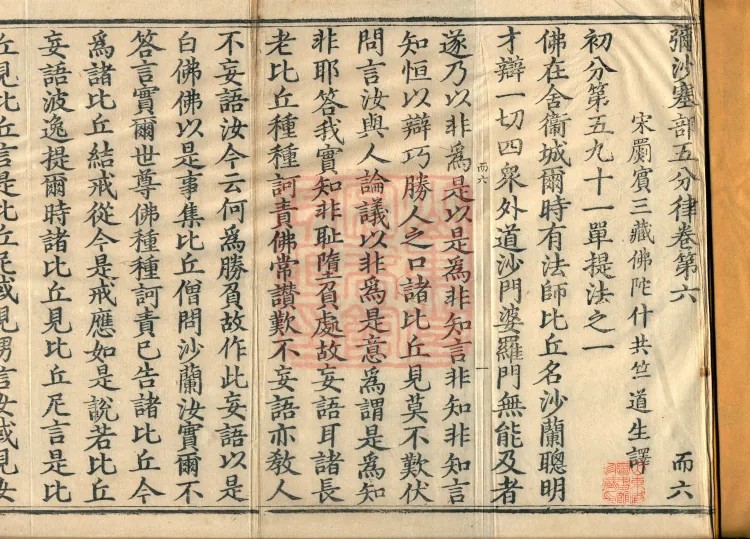 彌沙塞部五分律卷第六 而六
宋罽賓三藏佛陀什共竺道生譯
初分第五九十一單提法之一
佛在舍衞城爾時有法師比丘名沙蘭聰明
才辯一切四衆外道沙門婆羅門無能及者
而六 一
遂乃以非爲是以是爲非知言非知非知言
知恒以辯巧勝人之口諸比丘見莫不歎伏
問言汝與人論議以非爲是意爲謂是爲知
非耶答我實知非恥墮負處故妄語耳諸長
老比丘種種訶責佛常讃歎不妄語亦敎人
不妄語汝今云何爲勝負故作此妄語以是
白佛佛以是事集比丘僧問沙蘭汝實爾不
答言實爾世尊佛種種訶責已告諸比丘今
爲諸比丘結戒從今是戒應如是說若比丘
妄語波逸提爾時諸比丘見比丘尼言是比
丘見比丘言是比丘尼或見男言女或見女